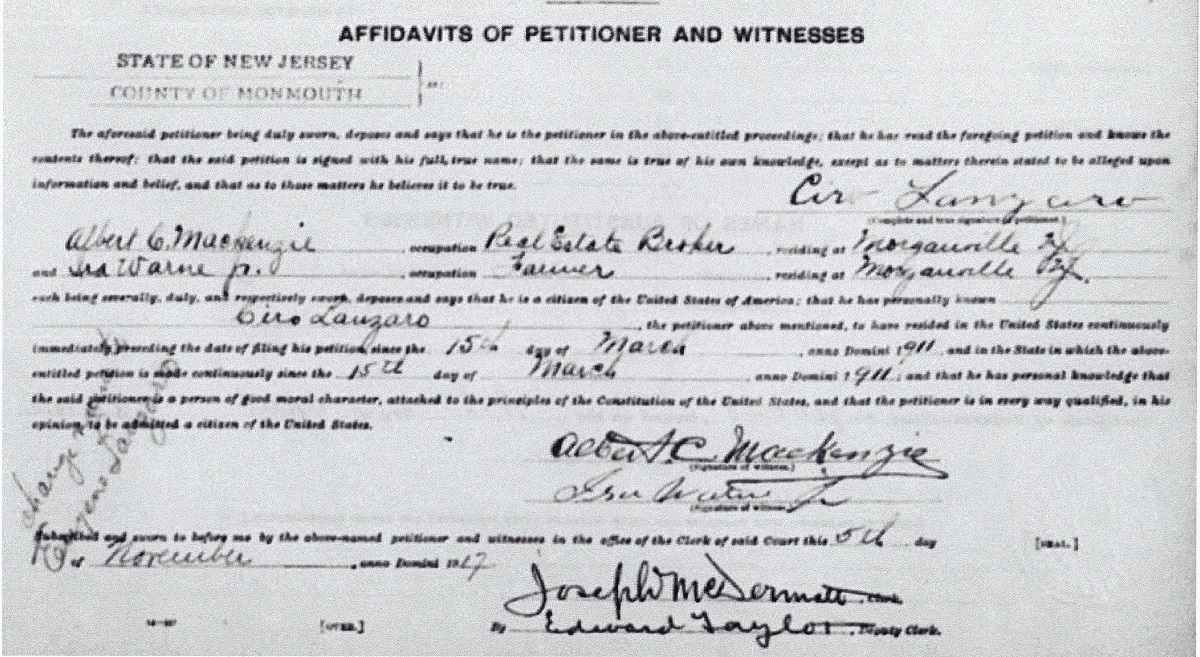 AFFIDAVITS OF PETITIONER AND WITNESSES
STATE OF NEW JERSEY
COUNTY OF MONMOUTH
The aforesaid petitioner being duly sworn, deposes and says that he is the petitioner in the above-entitled proceedings; that he has read the foregoing petition and knows the
contents thereof; that the said petition is signed with his full, true name; that the same is true of his own knowledge, except as to matters therein stated to be alleged upon
information and belief, and that as to those matters he believes it to be true.
Ciro Lanzaro
(Complete and true signature of petitioner.)
Albert C. Mackenzie, occupation Real Estate Broker, residing at Morganville NJ
and Ira Warne Jr., occupation Farmer, residing at Morganville NJ.
each being severally, duly, and respectively sworn, deposes and says that he is a citizen of the United States of America; that he has personally known
Ciro Lanzaro, the petitioner above mentioned, to have resided in the United States continuously
immediately preceding the date of filing his petition, since the 15th day of March, anno Domini 1911, and in the State in which the above-
entitled petition is made continuously since the 15th day of March, anno Domini 1911; and that he has personal knowledge that
the said petitioner is a person of good moral character, attached to the principles of the Constitution of the United States, and that the petitioner is in every way qualified, in his
opinion, to be admitted a citizen of the United States.
Albert C. Mackenzie
(Signature of witness.)
Ira Warne Jr
(Signature of witness.)
change name
to Eugene Lanzaro
Subscribed and sworn to before me by the above-named petitioner and witnesses in the office of the Clerk of said Court this 5th day [SEAL.]
of November, anno Domini 1917
Joseph McDermott, Clerk.
[OVER.] By Edward Taylor, Deputy Clerk.